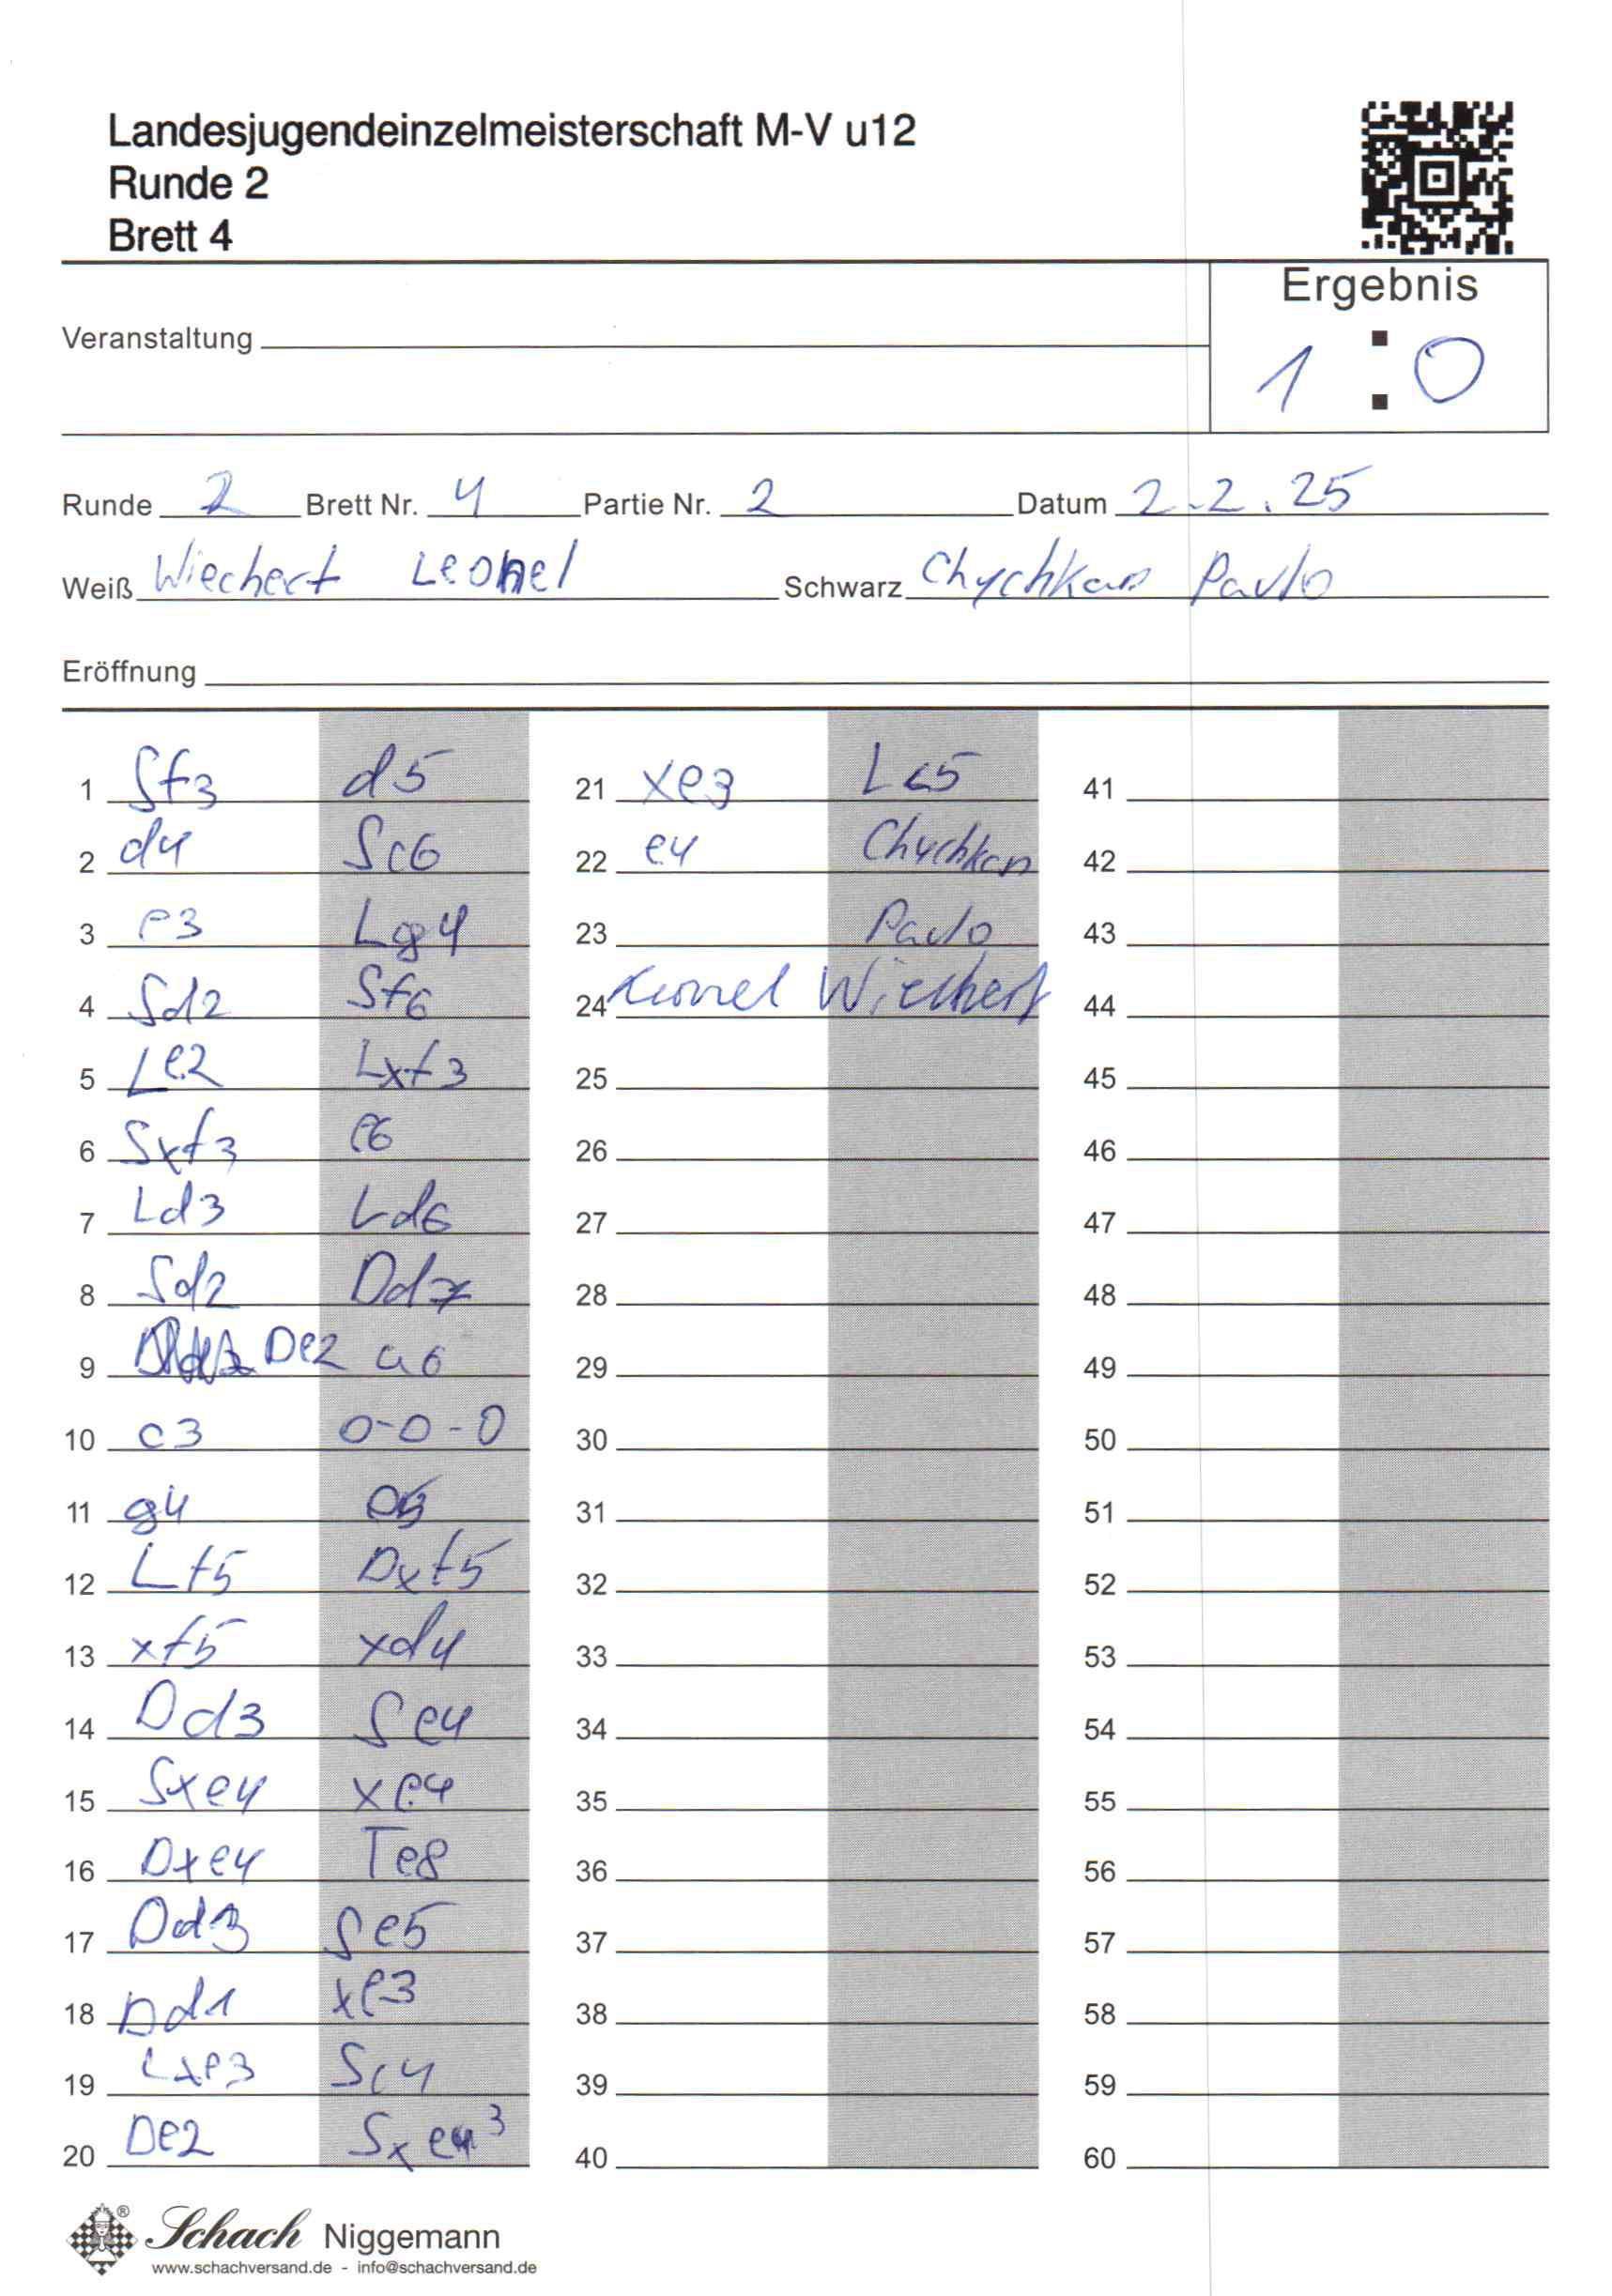 Landesjugendeinzelmeisterschaft M-V u12
Runde 2
Brett 4
Ergebnis
1 : 0
Veranstaltung
Runde 2 Brett Nr. 4 Partie Nr. 2 Datum 2.2.25
Weiß Wiechert Leonel Schwarz Chychkan Pavlo
Eröffnung
1 Sf3 d5
2 d4 Sc6
3 e3 Lg4
4 Sd2 Sf6
5 Le2 Lxf3
6 Sxf3 e6
7 Ld3 Ld6
8 Sd2 Dd7
9 De2 a6
10 c3 0-0-0
11 g4 e5
12 Lf5 Dxf5
13 xf5 xd4
14 Dd3 Se4
15 Sxe4 xe4
16 Dxe4 Te8
17 Dd3 Se5
18 Dd1 xe3
19 Lxe3 Sc4
20 De2 Sxe3
21 xe3 Lc5
22 e4 Chychkan
23 Pavlo
24 Leonel Wiechert
25
26
27
28
29
30
31
32
33
34
35
36
37
38
39
40
41
42
43
44
45
46
47
48
49
50
51
52
53
54
55
56
57
58
59
60
Schach Niggemann
www.schachversand.de - info@schachversand.de